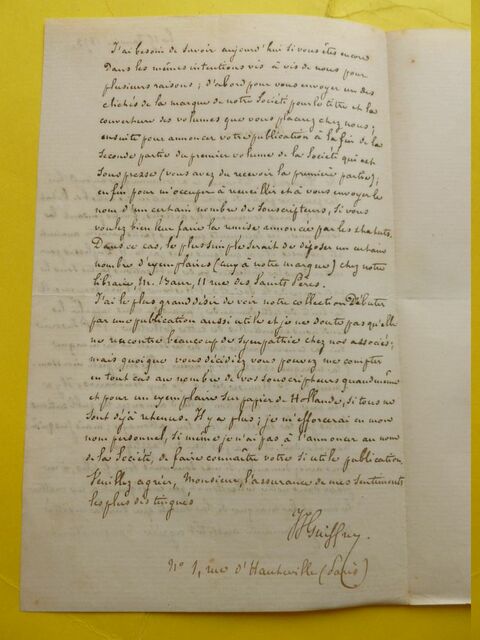 J'ai besoin de savoir aujourd'hui si vous êtes encore
Dans les mêmes intentions vis à vis de nous pour
plusieurs raisons ; d'abord pour vous envoyer un des
clichés de la marque de notre Société pour le titre et la
couverture des volumes que vous placiez chez nous ;
ensuite pour annoncer votre publication à la fin de la
seconde partie du premier volume de la Société qui est
sous presse (vous avez du recevoir la première partie) ;
enfin pour m'occuper à recueillir et à vous envoyer le
nom d'un certain nombre de souscripteurs, si vous
voulez bien leur faire la remise annoncée par les statuts.
Dans ce cas, le plus simple serait de déposer un certain
nombre d'exemplaires (ceux à notre marque) chez notre
libraire, M. Baur, 11 rue des Saints Pères.
J'ai le plus grand désir de voir notre collection Débuter
par une publication aussi utile et je ne doute pas qu'elle
ne rencontre beaucoup de sympathie chez nos associés ;
mais quoique vous décidiez vous pouvez me compter
en tout cas au nombre de vos souscripteurs quand même
et pour un exemplaire sur papier de Hollande, si tous ne
sont déjà retenus. Il y a plus ; je m'efforcerai en mon
nom personnel, si même je n'ai pas à l'annoncer au nom
de la Société, de faire connaître votre si utile publication.
Veuillez agréer, Monsieur, l'assurance de mes sentiments
les plus distingués
JJ Guiffrey.
N° 1, rue d'Hauteville (Paris)